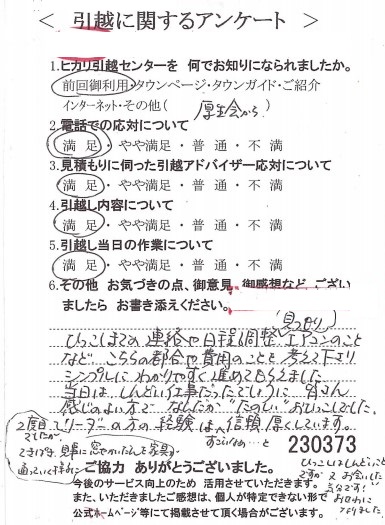 ＜ 引越に関するアンケート ＞
1.ヒカリ引越センターを 何でお知りになられましたか。
前回御利用・タウンページ・タウンガイド・ご紹介
インターネット・その他( 厚生会から )
2.電話での応対について
満 足 ・ やや満足 ・ 普 通 ・ 不 満
3.見積もりに伺った引越アドバイザー応対について
満 足 ・ やや満足 ・ 普 通 ・ 不 満
4.引越し内容について
満 足 ・ やや満足 ・ 普 通 ・ 不 満
5.引越し当日の作業について
満 足 ・ やや満足 ・ 普 通 ・ 不 満
6.その他 お気づきの点、御意見、御感想など ござい
ましたら お書き添えください。
(見つもり)
ひっこしまでの 連絡や日程調整、エアコンのこと
など、こちらの都合や費用のことを 考えて下さり
シンプルに わかりやすく進めてもらえました。
当日は、しんどい仕事だったでしょうに 皆さん
感じのよい方で なんだか たのしい おひっこしでした。
リーダーの方の経験は、信頼厚くしています。
2度目
でしたが、
すごいなめ…と
230373
ひっこしはしんどいこと
ですが、又お会いしたい
気分です!
お世話に
なりました。
ご協力 ありがとうございました。
今後のサービス向上のため 活用させていただきます。
また、いただきましたご感想は、個人が特定できない形で
公式ホームページ等にて掲載させて頂く場合がございます。